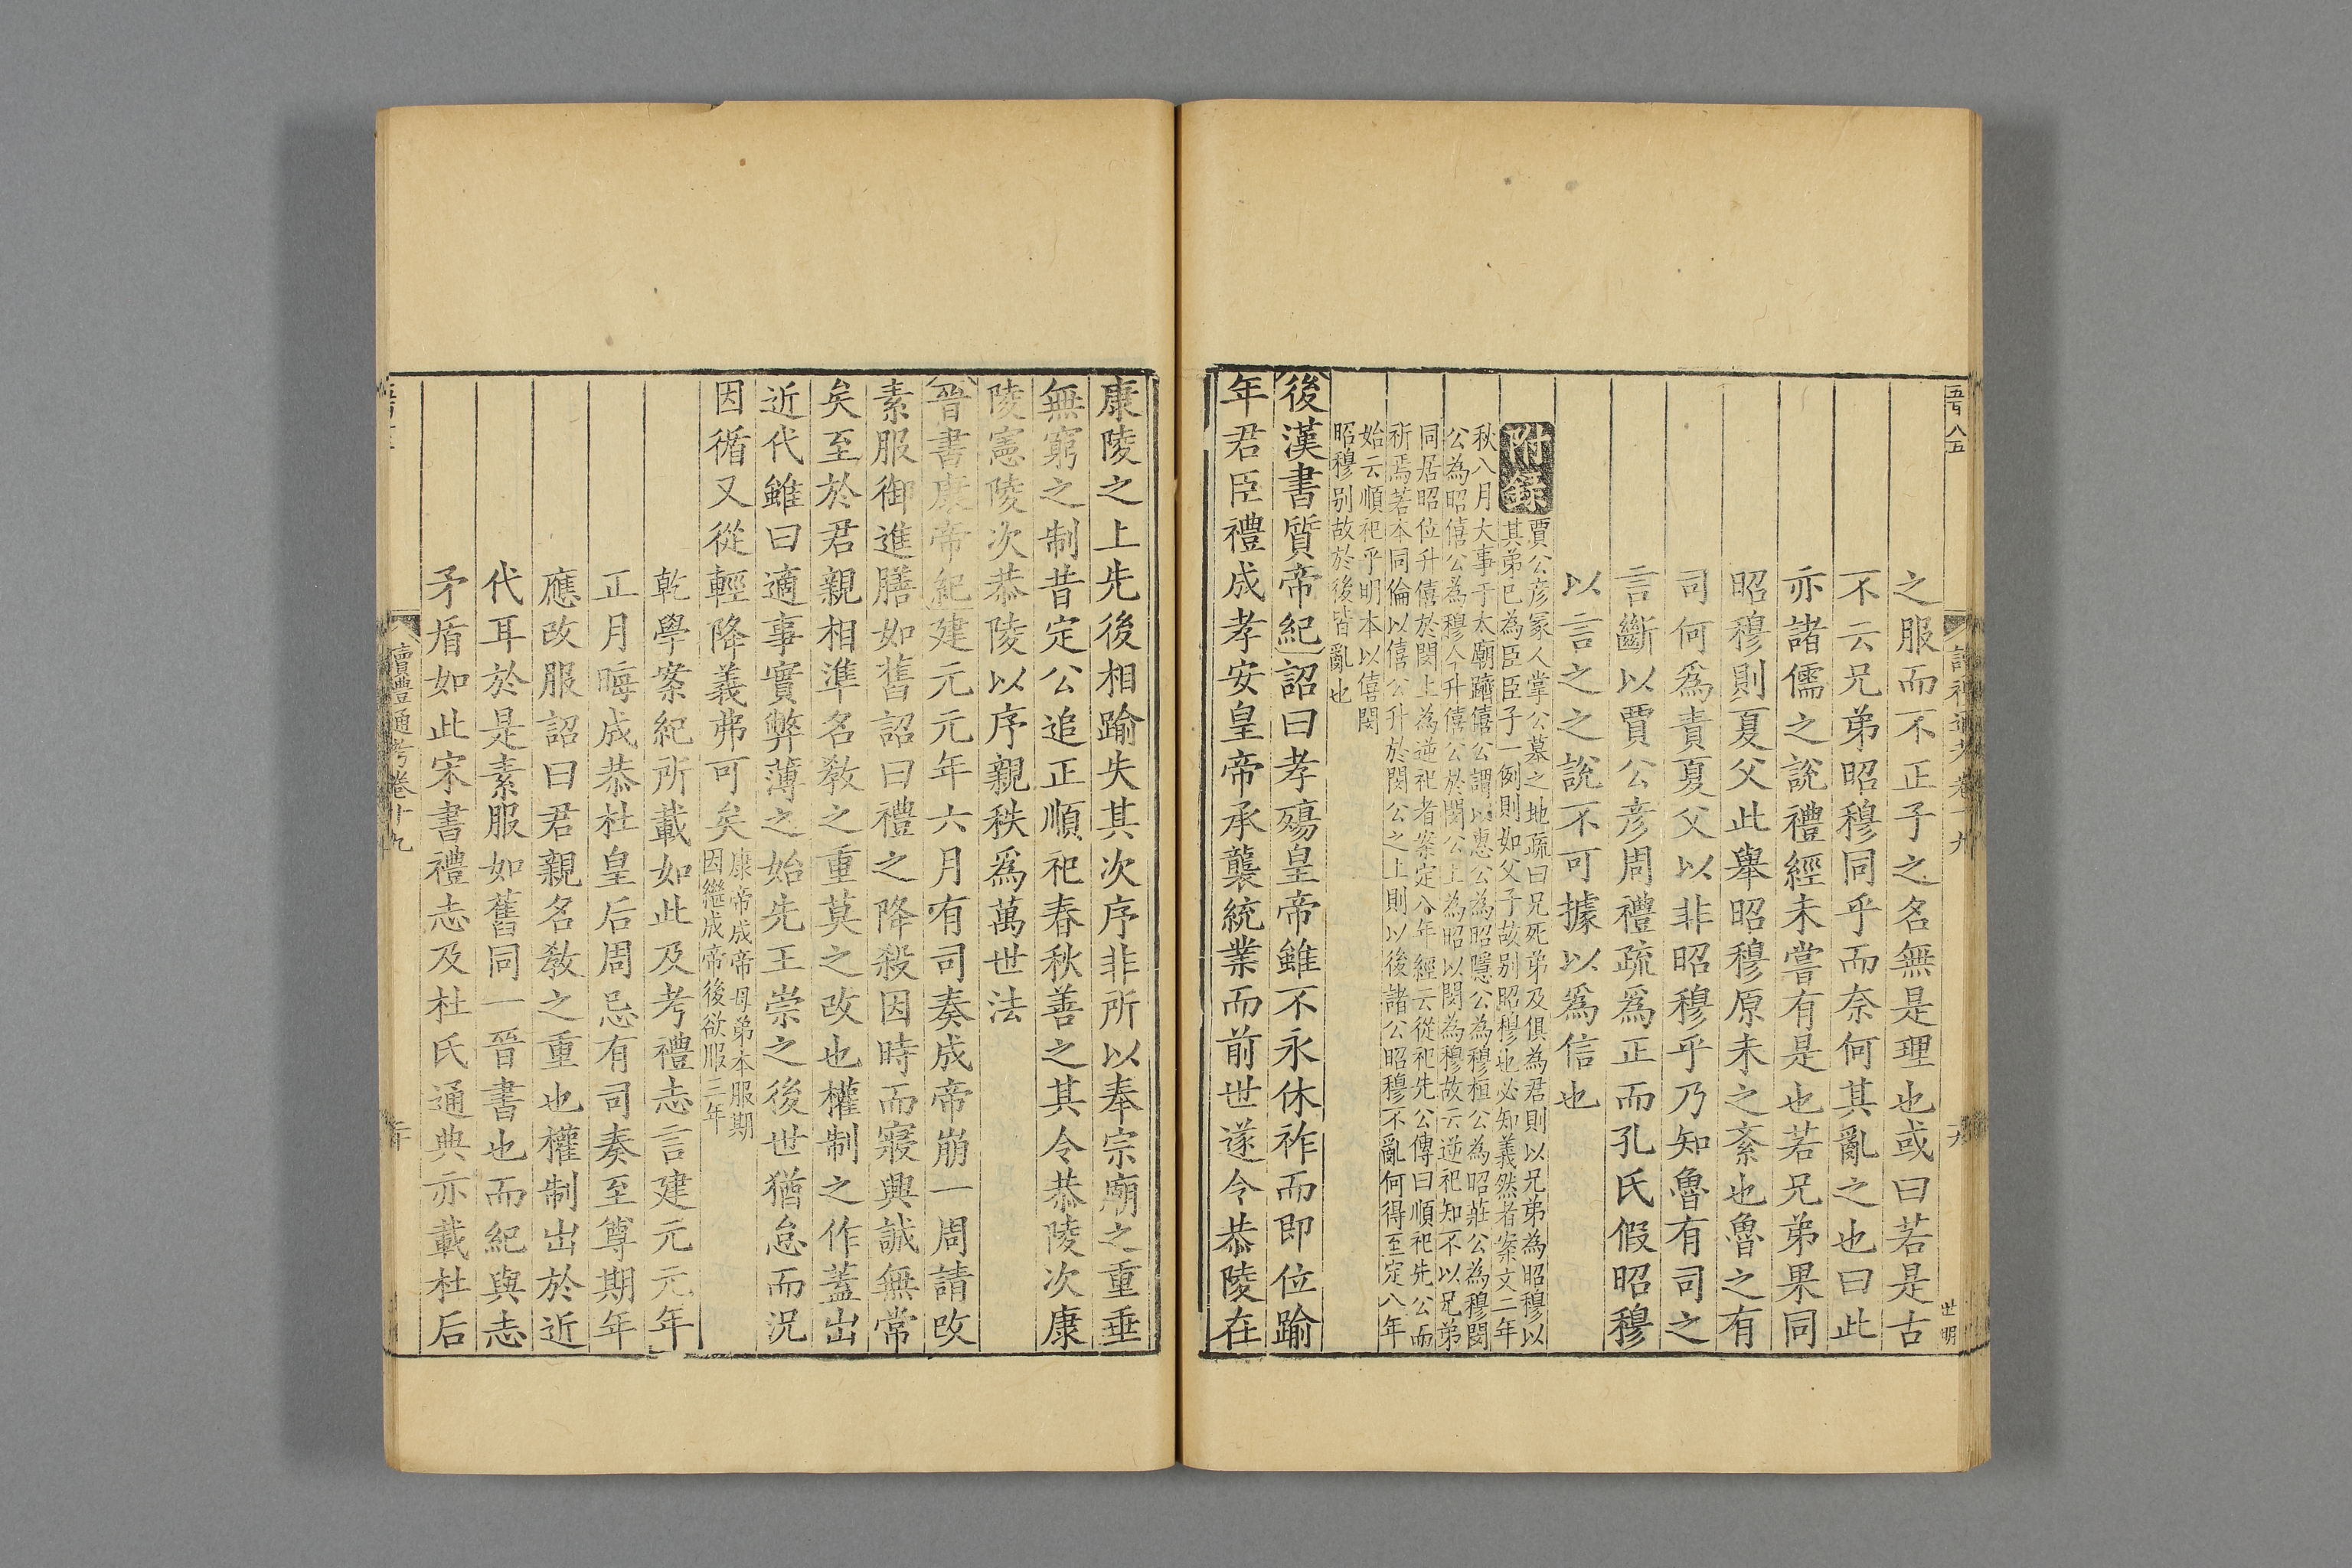 之服而不正子之名無是理也或曰若是古
不云兄弟昭穆同乎而奈何其亂之也曰此
亦諸儒之說禮經未嘗有是也若兄弟果同
昭穆則夏父此舉昭穆原未之紊也魯之有
司何爲責夏父以非昭穆乎乃知魯有司之
言斷以賈公彦周禮疏爲正而孔氏假昭穆
以言之之說不可據以爲信也
附錄
賈公彦冢人掌公墓之地疏曰兄死弟及俱為君則以兄弟為昭穆以
其弟已為臣臣子一例則如父子故别昭穆也必知義然者案文二年
秋八月大事于太廟躋僖公謂以惠公為昭隱公為穆桓公為昭莊公為穆閔
公為昭僖公為穆今升僖公於閔公上為昭以閔為穆故云逆祀知不以兄弟
同居昭位升僖於閔上為逆祀者案定八年經云從祀先公傳曰順祀先公而
祈焉若本同倫以僖公升於閔公之上則以後諸公昭穆不亂何得至定八年
始云順祀乎明本以僖閔
昭穆别故於後皆亂也
後漢書質帝紀詔曰孝殤皇帝雖不永休祚而即位踰
年君臣禮成孝安皇帝承襲統業而前世遂令恭陵在
康陵之上先後相踰失其次序非所以奉宗廟之重垂
無窮之制昔定公追正順祀春秋善之其令恭陵次康
陵憲陵次恭陵以序親秩爲萬世法
晉書康帝紀建元元年六月有司奏成帝崩一周請改
素服御進膳如舊詔曰禮之降殺因時而寢興誠無常
矣至於君親相準名敎之重莫之改也權制之作蓋出
近代雖曰適事實弊薄之始先王崇之後世猶怠而況
因循又從輕降義弗可矣
康帝成帝母弟本服期
因繼成帝後欲服三年
乾學案紀所載如此及考禮志言建元元年
正月晦成恭杜皇后周忌有司奏至尊期年
應改服詔曰君親名敎之重也權制出於近
代耳於是素服如舊同一晉書也而紀與志
矛盾如此宋書禮志及杜氏通典亦載杜后
讀禮通考卷廿九